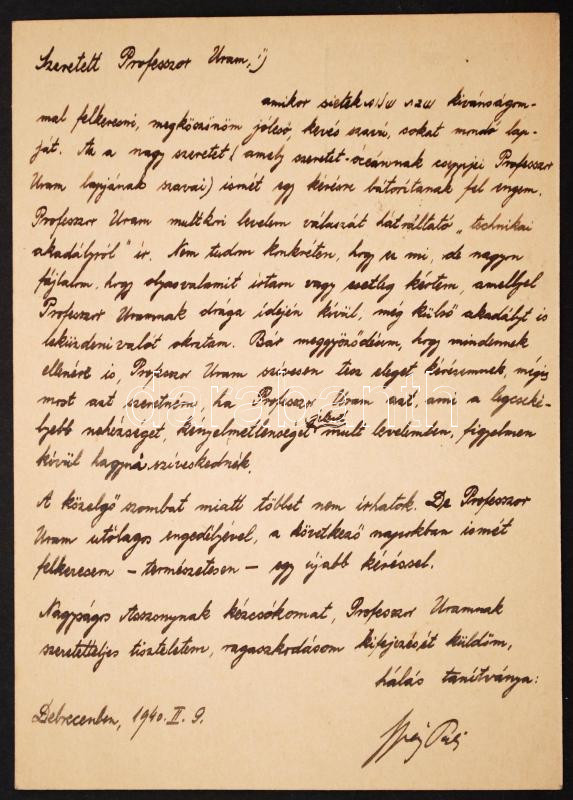 Szeretett Professzor Uram, :)
amikor sietek שבת שלום kivánságom-
mal felkeresni, megköszönöm jóleső, kevés szavú, sokat mondó lap-
ját. Az a nagy szeretet (amely szeretet-óceánnak cseppjei Professzor
Uram lapjának szavai) ismét egy kérésre bátorítanak fel engem.
Professzor Uram multkori levelem válaszát hátráltató „technikai
akadályról" ír. Nem tudom konkréten, hogy ez mi, de nagyon
fájlalom, hogy olyasvalamit írtam vagy esetleg kértem, amellyel
Professzor Uramnak drága idején kívül, még külső akadályt is
leküzdeni valót okoztam. Bár meggyőződésem, hogy mindennek
ellenére is, Professzor Uram szívesen tesz eleget kérésemnek, mégis
most azt szeretném, ha Professzor Uram azt, ami a legcseké-
lyebb nehézséget, kényelmetlenséget okoz mult levelemben, figyelmen
kívül hagyná szíveskednék.
A közelgő szombat miatt többet nem írhatok. De Professzor
Uram utólagos engedélyével, a következő napokban ismét
felkeresem – természetesen – egy újabb kéréssel.
Nagyságos Asszonynak kézcsókomat, Professzor Uramnak
szeretetteljes tiszteletem, ragaszkodásom kifejezését küldöm,
hálás tanítványa:
Debrecenben, 1940. II. 9.
darabanth